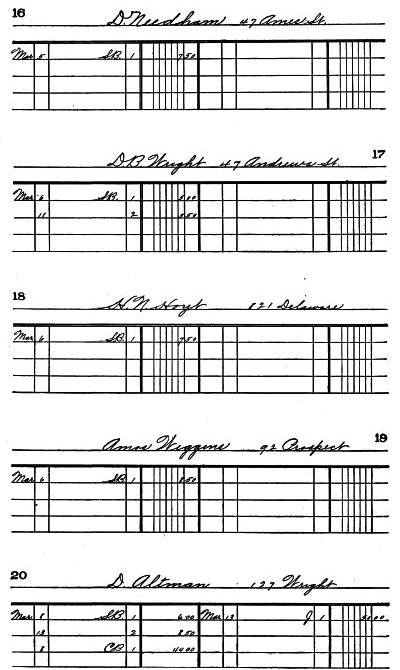 16
D Needham 47 Ames St.
Mar 5 S.B. 1 7 50
D B Wright 47 Andrews St. 17
Mar 6 S.B. 1 8 00
11 2 8 50
18
H. N. Hoyt 821 Delaware
Mar 6 S.B. 1 7 50
Amos Wiggins 92 Prospect 19
Mar 6 S.B. 1 8 50
20
D Altman 127 Wright
Mar 8 S.B. 1 6 00 Mar 13 J 1
2 8 50
8 C.B. 1 44 00